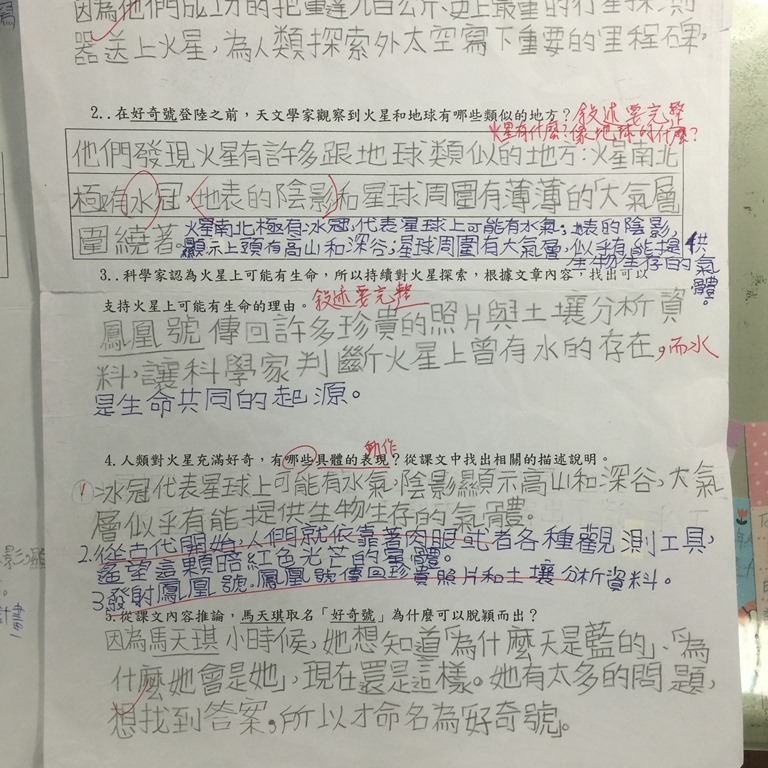 因為他們成功的把重達九百公斤、史上最重的行星探測
器送上火星，為人類探索外太空寫下重要的里程碑，
2..在好奇號登陸之前，天文學家觀察到火星和地球有哪些類似的地方？敘述要完整
火星有什麼？像地球的什麼？
他們發現火星有許多跟地球類似的地方：火星南北
極有冰冠，地表的陰影和星球周圍有薄薄的大氣層
圍繞著。
火星南北極有冰冠，代表星球上可能有水氣；地表的陰影，
顯示上頭有高山和深谷；星球周圍有大氣層，似乎有能提供
生物生存的氣體。
3..科學家認為火星上可能有生命，所以持續對火星探索，根據文章內容，找出可以
支持火星上可能有生命的理由。敘述要完整
鳳凰號傳回許多珍貴的照片與土壤分析資
料，讓科學家判斷火星上曾有水的存在，而水
是生命共同的起源。
動作
4.人類對火星充滿好奇，有哪些具體的表現？從課文中找出相關的描述說明。
1.冰冠代表星球上可能有水氣，陰影顯示高山和深谷，大氣
層似乎有能提供生物生存的氣體。
2.從古代開始，人們就依靠著肉眼或者各種觀測工具，
遙望這顆暗紅色光芒的星體。
3.發射鳳凰號。鳳凰號傳回珍貴照片和土壤分析資料。
5.從課文內容推論，馬天琪取名「好奇號」為什麼可以脫穎而出？
因為馬天琪小時候，她想知道「為什麼天是藍的」、「為
什麼她會是她」，現在還是這樣。她有太多的問題，
想找到答案，所以才命名為「好奇號」。